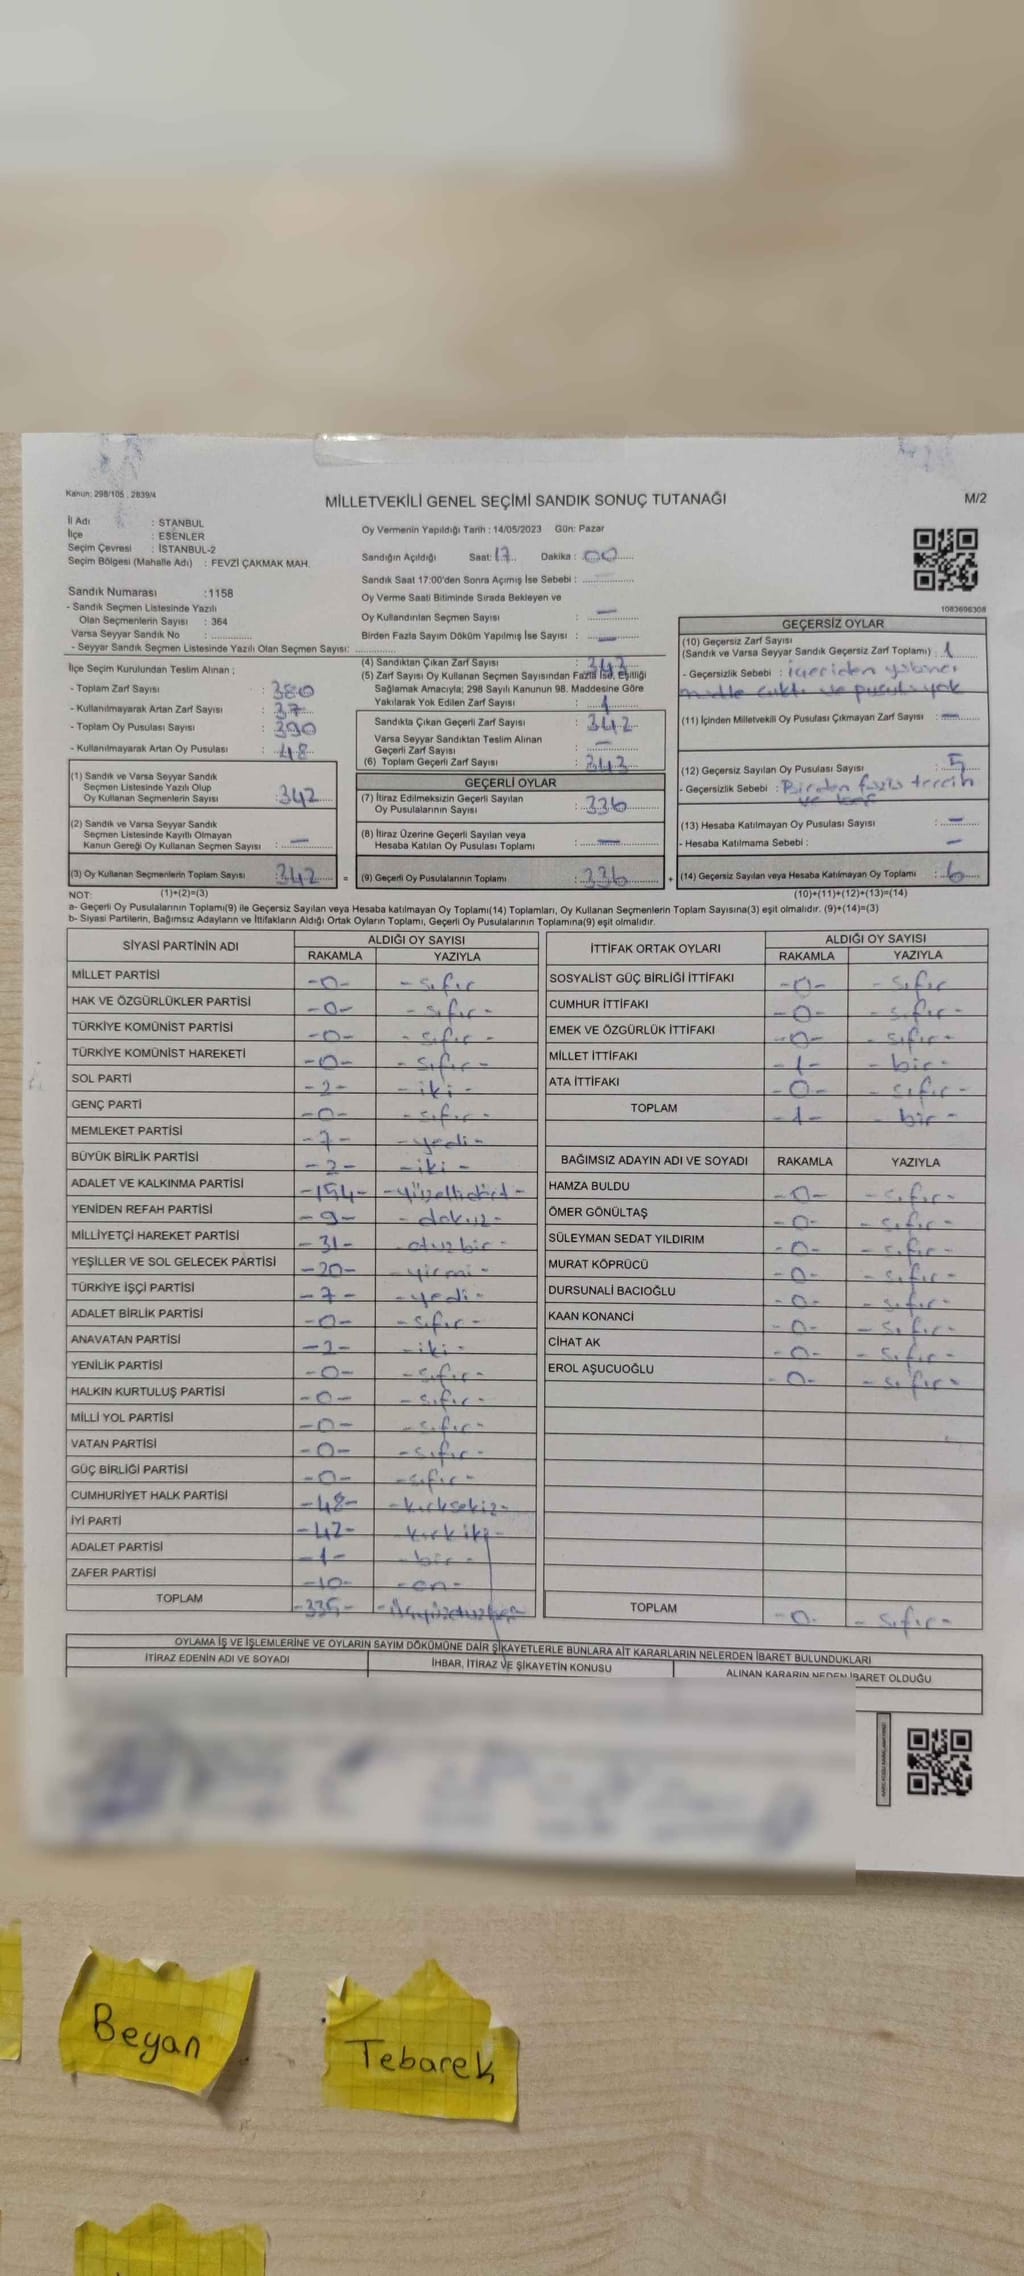 Kanun: 298/105 , 2839/4
MİLLETVEKİLİ GENEL SEÇİMİ SANDIK SONUÇ TUTANAĞI
M/2
İl Adı : STANBUL
İlçe : ESENLER
Seçim Çevresi : İSTANBUL-2
Seçim Bölgesi (Mahalle Adı) : FEVZİ ÇAKMAK MAH.
Oy Vermenin Yapıldığı Tarih : 14/05/2023 Gün: Pazar
Sandığın Açıldığı Saat: 17 Dakika : 00
Sandık Saat 17:00'den Sonra Açılmış İse Sebebi :
Oy Verme Saati Bitiminde Sırada Bekleyen ve
Oy Kullandırılan Seçmen Sayısı : —
Birden Fazla Sayım Döküm Yapılmış İse Sayısı : —
Sandık Numarası :1158
- Sandık Seçmen Listesinde Yazılı
Olan Seçmenlerin Sayısı : 364
Varsa Seyyar Sandık No :
- Seyyar Sandık Seçmen Listesinde Yazılı Olan Seçmen Sayısı:
1083696308
İlçe Seçim Kurulundan Teslim Alınan ;
- Toplam Zarf Sayısı : 380
- Kullanılmayarak Artan Zarf Sayısı : 37
- Toplam Oy Pusulası Sayısı : 390
- Kullanılmayarak Artan Oy Pusulası : 48
(1) Sandık ve Varsa Seyyar Sandık
Seçmen Listesinde Yazılı Olup
Oy Kullanan Seçmenlerin Sayısı : 342
(2) Sandık ve Varsa Seyyar Sandık
Seçmen Listesinde Kayıtlı Olmayan
Kanun Gereği Oy Kullanan Seçmen Sayısı : —
(3) Oy Kullanan Seçmenlerin Toplam Sayısı : 342 =
(1)+(2)=(3)
(4) Sandıktan Çıkan Zarf Sayısı : 343
(5) Zarf Sayısı Oy Kullanan Seçmen Sayısından Fazla İse, Eşitliği
Sağlamak Amacıyla; 298 Sayılı Kanunun 98. Maddesine Göre
Yakılarak Yok Edilen Zarf Sayısı : 1
Sandıkta Çıkan Geçerli Zarf Sayısı : 342
Varsa Seyyar Sandıktan Teslim Alınan
Geçerli Zarf Sayısı : —
(6) Toplam Geçerli Zarf Sayısı : 343
GEÇERLİ OYLAR
(7) İtiraz Edilmeksizin Geçerli Sayılan
Oy Pusulalarının Sayısı : 336
(8) İtiraz Üzerine Geçerli Sayılan veya
Hesaba Katılan Oy Pusulası Toplamı : —
(9) Geçerli Oy Pusulalarının Toplamı : 336 +
GEÇERSİZ OYLAR
(10) Geçersiz Zarf Sayısı
(Sandık ve Varsa Seyyar Sandık Geçersiz Zarf Toplamı) : 1
- Geçersizlik Sebebi : içeriden yabancı
madde çıktı ve pusula yok
(11) İçinden Milletvekili Oy Pusulası Çıkmayan Zarf Sayısı : —
(12) Geçersiz Sayılan Oy Pusulası Sayısı : 5
- Geçersizlik Sebebi : Birden fazla tercih
ve
(13) Hesaba Katılmayan Oy Pusulası Sayısı : —
- Hesaba Katılmama Sebebi : —
(14) Geçersiz Sayılan veya Hesaba Katılmayan Oy Toplamı : 6
(10)+(11)+(12)+(13)=(14)
NOT:
a- Geçerli Oy Pusulalarının Toplamı(9) ile Geçersiz Sayılan veya Hesaba katılmayan Oy Toplamı(14) Toplamları, Oy Kullanan Seçmenlerin Toplam Sayısına(3) eşit olmalıdır. (9)+(14)=(3)
b- Siyasi Partilerin, Bağımsız Adayların ve İttifakların Aldığı Ortak Oyların Toplamı, Geçerli Oy Pusulalarının Toplamına(9) eşit olmalıdır.
SİYASİ PARTİNİN ADI ALDIĞI OY SAYISI
RAKAMLA YAZIYLA
MİLLET PARTİSİ -0- -sıfır
HAK VE ÖZGÜRLÜKLER PARTİSİ -0- -sıfır-
TÜRKİYE KOMÜNİST PARTİSİ -0- -sıfır-
TÜRKİYE KOMÜNİST HAREKETİ -0- -sıfır-
SOL PARTİ -2- -iki-
GENÇ PARTİ -0- -sıfır-
MEMLEKET PARTİSİ -7- -yedi-
BÜYÜK BİRLİK PARTİSİ -2- -iki-
ADALET VE KALKINMA PARTİSİ -154- -yüzellidört-
YENİDEN REFAH PARTİSİ -9- -dokuz-
MİLLİYETÇİ HAREKET PARTİSİ -31- -otuzbir-
YEŞİLLER VE SOL GELECEK PARTİSİ -20- -yirmi-
TÜRKİYE İŞÇİ PARTİSİ -7- -yedi-
ADALET BİRLİK PARTİSİ -0- -sıfır-
ANAVATAN PARTİSİ -2- -iki-
YENİLİK PARTİSİ -0- -sıfır-
HALKIN KURTULUŞ PARTİSİ -0- -sıfır-
MİLLİ YOL PARTİSİ -0- -sıfır-
VATAN PARTİSİ -0- -sıfır-
GÜÇ BİRLİĞİ PARTİSİ -0- -sıfır-
CUMHURİYET HALK PARTİSİ -48- -kırksekiz-
İYİ PARTİ -42- -kırkiki-
ADALET PARTİSİ -1- -bir-
ZAFER PARTİSİ -10- -on-
TOPLAM -335- -üçyüzotuzbeş-
İTTİFAK ORTAK OYLARI ALDIĞI OY SAYISI
RAKAMLA YAZIYLA
SOSYALİST GÜÇ BİRLİĞİ İTTİFAKI -0- -sıfır
CUMHUR İTTİFAKI -0- -sıfır-
EMEK VE ÖZGÜRLÜK İTTİFAKI -0- -sıfır-
MİLLET İTTİFAKI -1- -bir-
ATA İTTİFAKI -0- -sıfır-
TOPLAM -1- -bir-
BAĞIMSIZ ADAYIN ADI VE SOYADI RAKAMLA YAZIYLA
HAMZA BULDU -0- -sıfır-
ÖMER GÖNÜLTAŞ -0- -sıfır-
SÜLEYMAN SEDAT YILDIRIM -0- -sıfır-
MURAT KÖPRÜCÜ -0- -sıfır-
DURSUNALİ BACIOĞLU -0- -sıfır-
KAAN KONANCİ -0- -sıfır-
CİHAT AK -0- -sıfır-
EROL AŞUCUOĞLU -0- -sıfır-
TOPLAM -0- -sıfır-
OYLAMA İŞ VE İŞLEMLERİNE VE OYLARIN SAYIM DÖKÜMÜNE DAİR ŞİKAYETLERLE BUNLARA AİT KARARLARIN NELERDEN İBARET BULUNDUKLARI
İTİRAZ EDENİN ADI VE SOYADI İHBAR, İTİRAZ VE ŞİKAYETİN KONUSU ALINAN KARARIN NEDEN İBARET OLDUĞU
Beyan
Tebarek